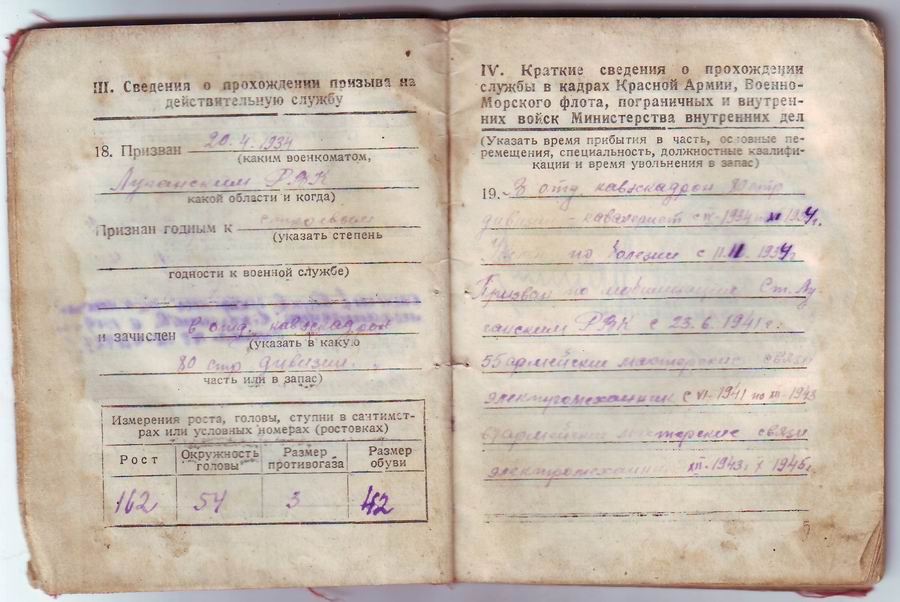 III. Сведения о прохождении призыва на
действительную службу
18. Призван 20.4.1934
(каким военкоматом,
Луганским РВК
какой области и когда)
Признан годным к строевой
(указать степень
годности к военной службе)
и зачислен в отд. кавэскадрон
(указать в какую
80 стр дивизии.
часть или в запас)
Измерения роста, головы, ступни в сантимет-
рах или условных номерах (ростовках)
Рост Окружность головы Размер противогаза Размер обуви
162 54 3 42
IV. Краткие сведения о прохождении
службы в кадрах Красной Армии, Военно-
Морского флота, пограничных и внутрен-
них войск Министерства внутренних дел
(Указать время прибытия в часть, основные пе-
ремещения, специальность, должностные квалифи-
кации и время увольнения в запас)
19. В отд кавэскадрон 80 стр
дивизии - кавалерист с 1934 по XI 1934г.
по болезни с 11.11.1934г
Призван по мобилизации Ст. Лу
ганским РВК с 23.6.1941г.
55 армейские мастерские связи
электромеханик с VI-1941 по XII-1943
армейские мастерские связи
электромеханик XII-1943г X 1945г.
5